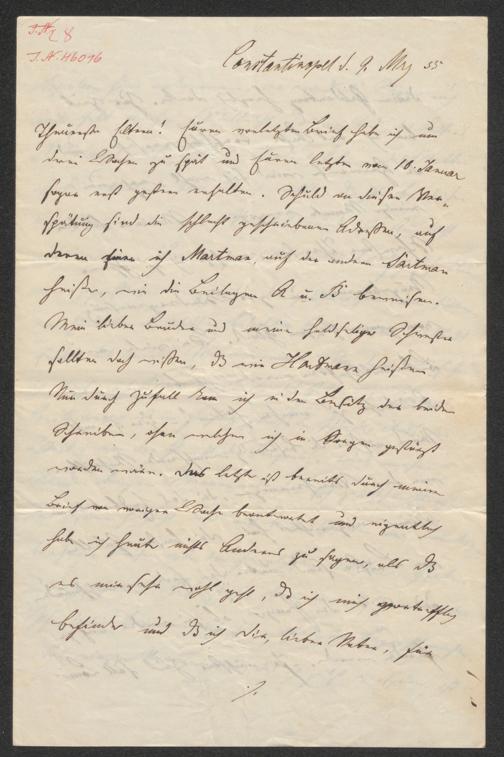 I.N. 46096
Constantinopel d. 9. Mrz 55
Theuerste Eltern! Euren vorletzten Brief habe ich um
drei Wochen zu spät und Euren letzten vom 10. Januar
sogar erst gestern erhalten. Schuld an diesen Ver-
spätung sind die schlecht geschriebenen Adressen, auf
deren einer ich Martman, auf der andern Särtman
heiße, wie die Beilagen A u. B beweisen.
Mein lieber Bruder und meine holdselige Schwester
sollten doch wissen, daß wir Hartmann heißen
Nur durch Zufall kam ich in den Besitz der beiden
Schreiben, ohne welchen ich in Sorgen gestürzt
worden wäre. Das letzte ist bereits durch meinen
Brief vor einigen Wochen beantwortet und eigentlich
habe ich heute nichts Anderes zu sagen, als daß
es mir sehr wohl geht, daß ich mich vortrefflich
befinde und daß ich Dir, lieber Vater, für
./.